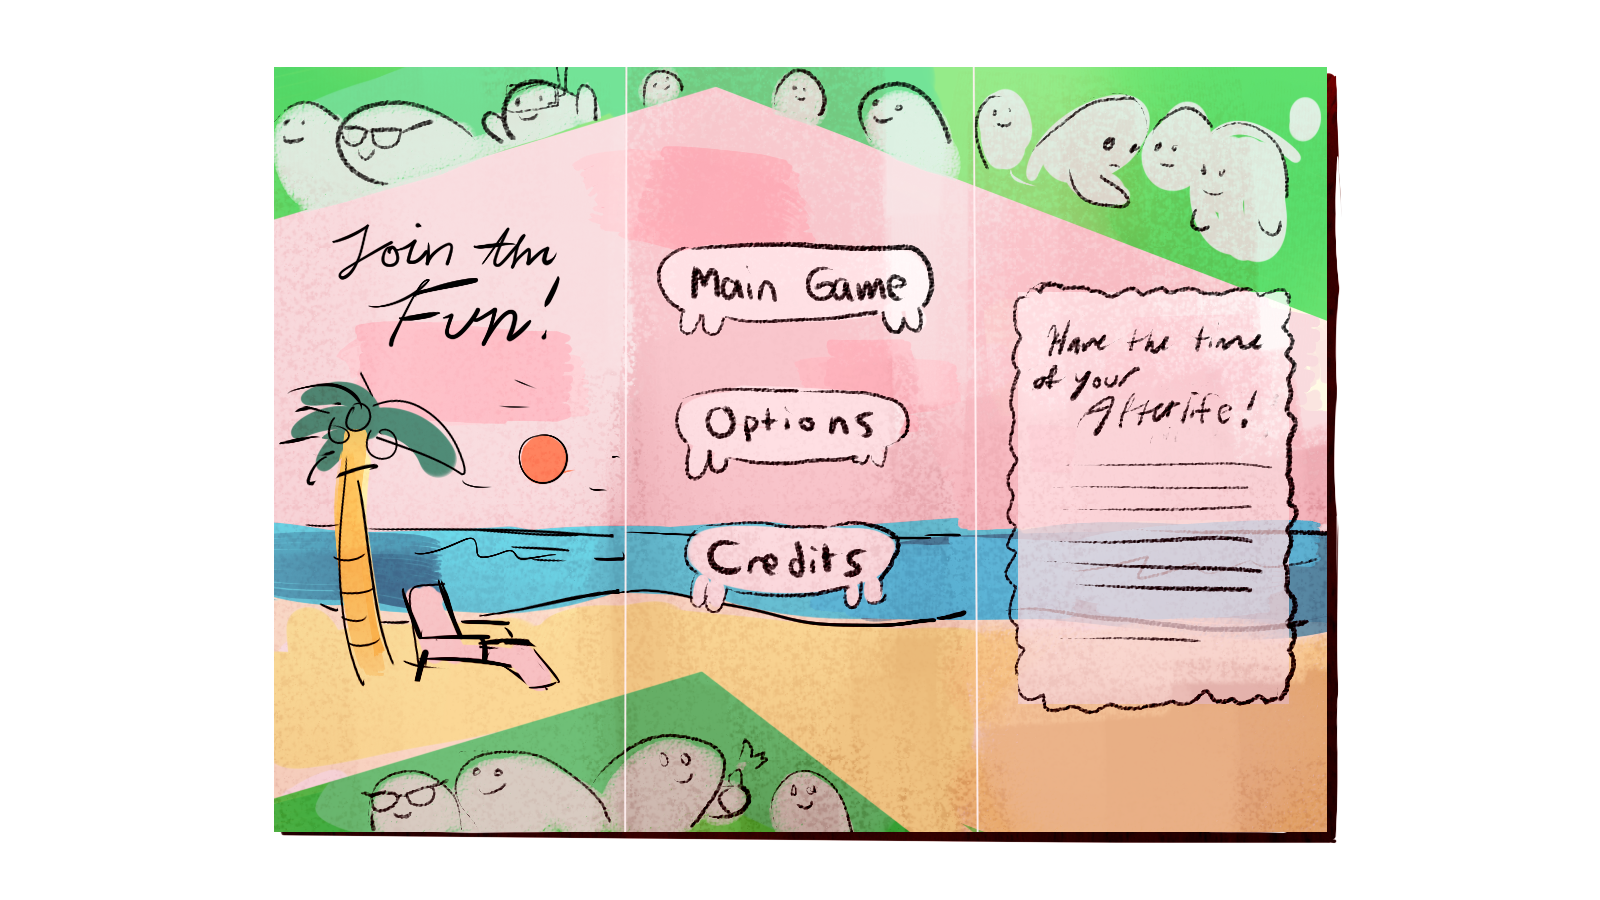 Join the
Fun!
Main Game
Options
Credits
Have the time
of your
Afterlife!